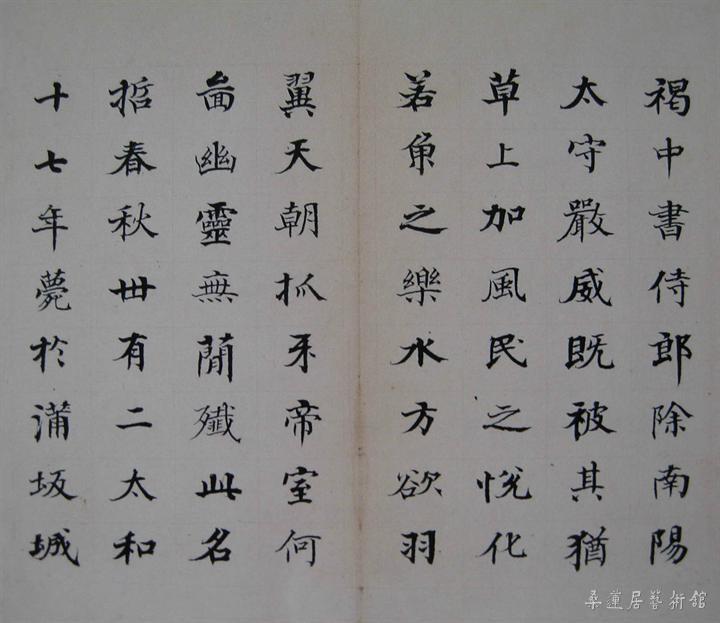 褐中書侍郎除南陽
太守嚴威既被其猶
草上加風民之悅化
若魚之樂水方欲羽
翼天朝抓牙帝室何
啚幽靈無簡殲此名
哲春秋卌有二太和
十七年薨於蒲坂城
桑蓮居藝術館